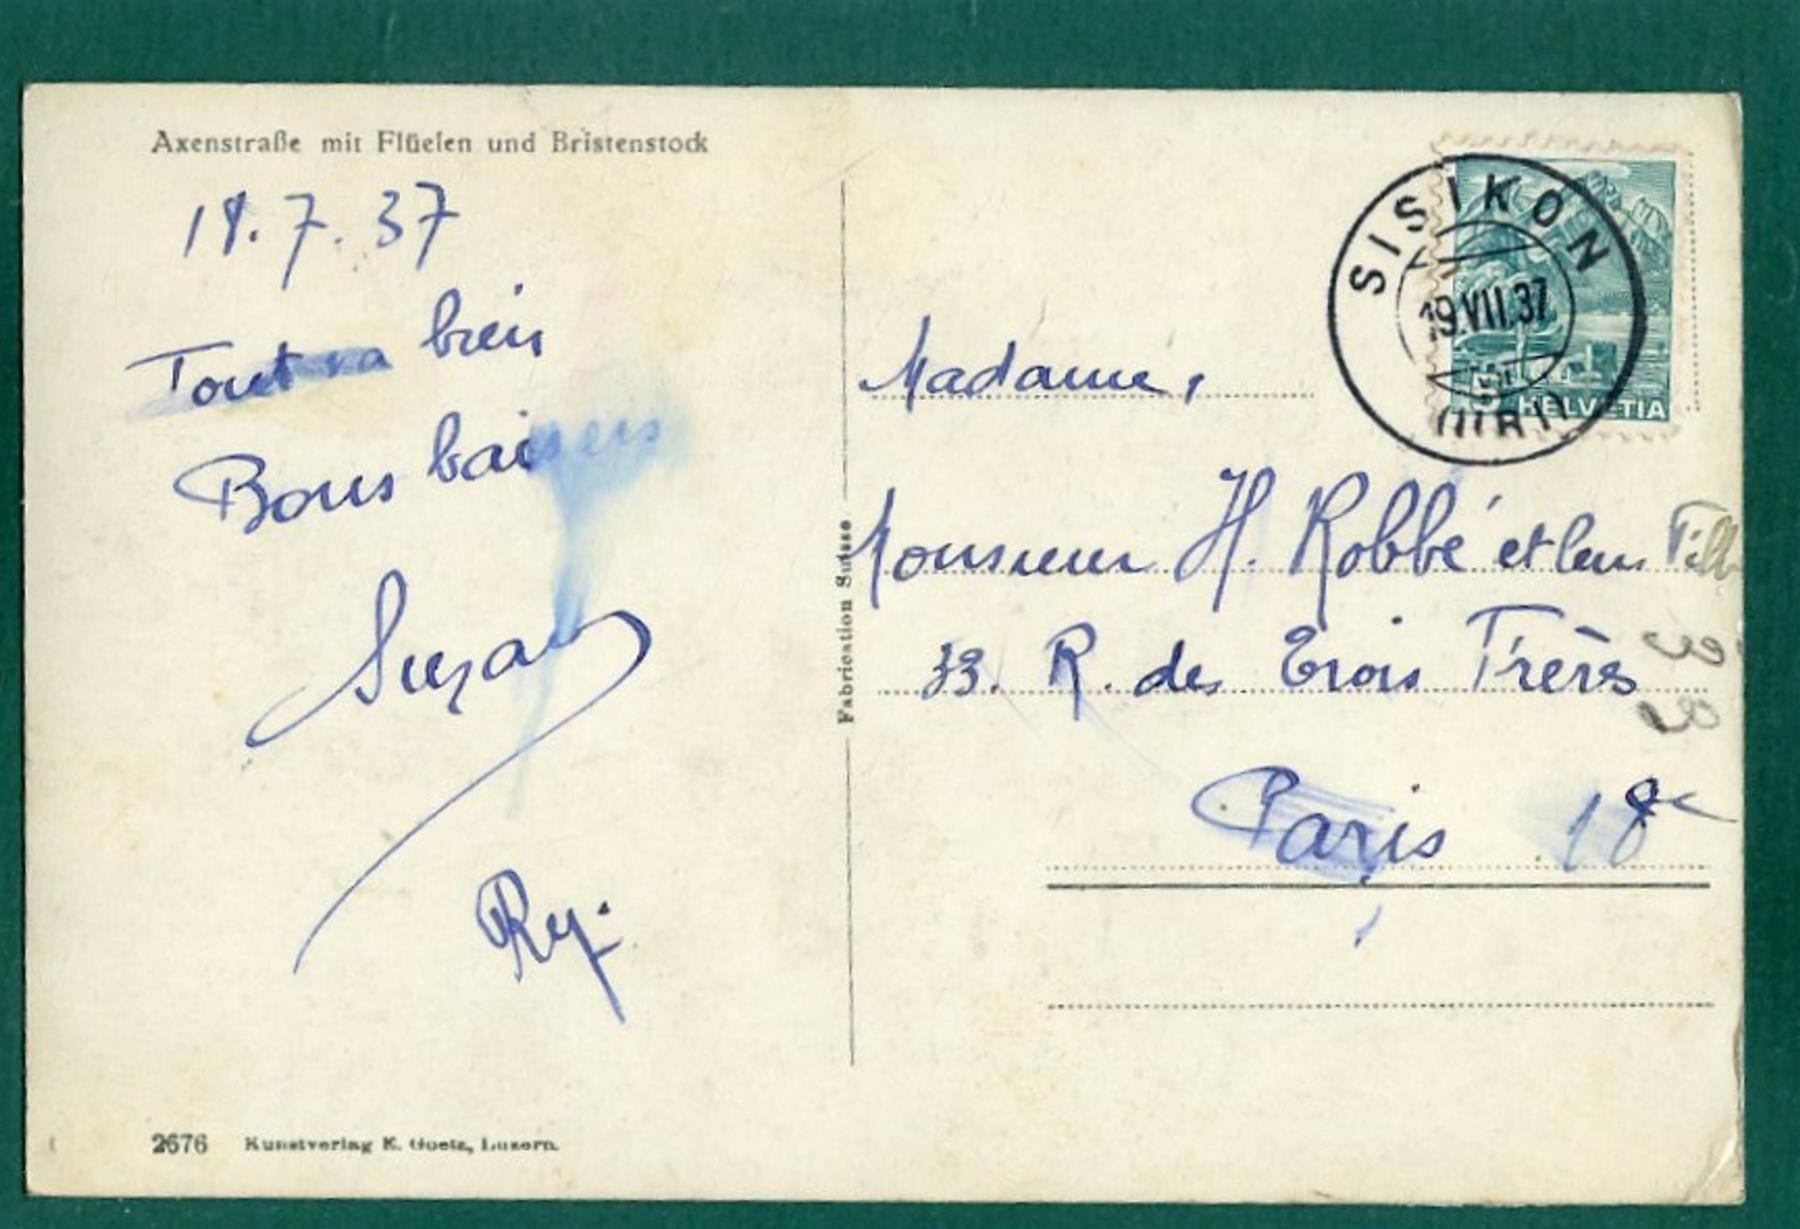 Axenstraße mit Flüelen und Bristenstock
18.7.37
Tout va bien
Bons baisers
Suzan
Ry.
2676 Kunstverlag E. Goetz, Luzern.
Fabrication Suisse
SISIKON
19.VII.37
(URI)
5 HELVETIA
Madame,
Monsieur H. Robbé et leur Fille
33. R. des Trois Frères
Paris 18e